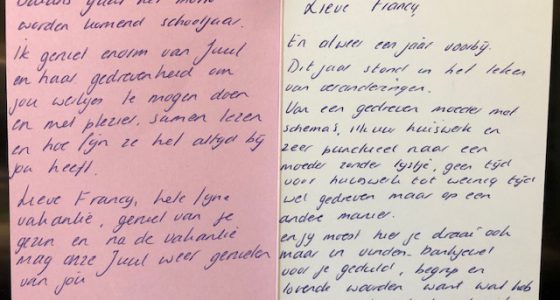 Balans gaat het motto
worden komend schooljaar.
Ik geniet enorm van Juul
en haar gedrevenheid om
jou werkjes te mogen doen
en met plezier. Samen lezen
en hoe fijn ze het altyd bij
jou heeft.
Lieve Francy, hele fijne
vakantie, geniet van je
gezin en na de vakantie
mag onze Juul weer genieten
van jou
Lieve Francy,
En alweer een jaar voorbij.
Dit jaar stond in het teken
van veranderingen.
Van een gedreven moeder met
schema's, uur huiswerk en
zeer punctueel naar een
moeder zonder lystje, geen tijd
voor huiswerk tot weinig tijd
wel gedreven maar op een
andere manier.
en jy moest hier je draai ook
maar in vinden. Dankjewel
voor je geduld, begrip en
lovende woorden want wat heb